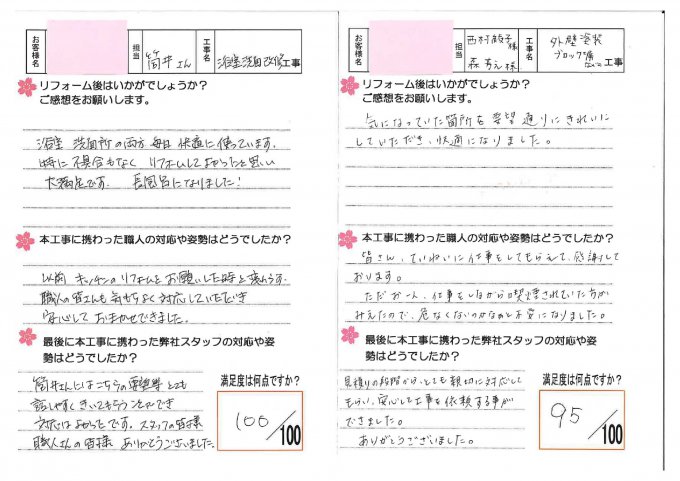 お客様名
担当
筒井さん
工事名
浴室洗面改修工事
リフォーム後はいかがでしょうか?
ご感想をお願いします。
浴室 洗面所の両方 毎日 快適に使っています。
特に不具合もなく リフォームしてよかったと思い
大満足です。 長風呂になりました!
本工事に携わった職人の対応や姿勢はどうでしたか?
以前 キッチンのリフォームをお願いした時と変わらず、
職人の皆さんも気持ちよく対応していただき
安心しておまかせできました。
最後に本工事に携わった弊社スタッフの対応や姿
勢はどうでしたか?
筒井さんにはこちらの要望等とても
話しやすくきいてもらうことができ
対応はよかったです。スタッフの皆様
職人さんの皆様 ありがとうございました。
満足度は何点ですか?
100/100
お客様名
担当
西村 様
森 様
工事名
外壁塗装
ブロック塀
など工事
リフォーム後はいかがでしょうか?
ご感想をお願いします。
気になっていた箇所を要望通りにきれいに
していただき、快適になりました。
本工事に携わった職人の対応や姿勢はどうでしたか?
皆さん、ていねいに仕事をしてもらえて、感謝して
おります。
ただお一人、仕事をしながら喫煙されていた方が
みえたので、危なくないのかなぁと不安になりました。
最後に本工事に携わった弊社スタッフの対応や姿
勢はどうでしたか?
見積りの段階から、とても親切に対応して
もらい、安心して工事を依頼する事が
できました。
ありがとうございました。
満足度は何点ですか?
95/100